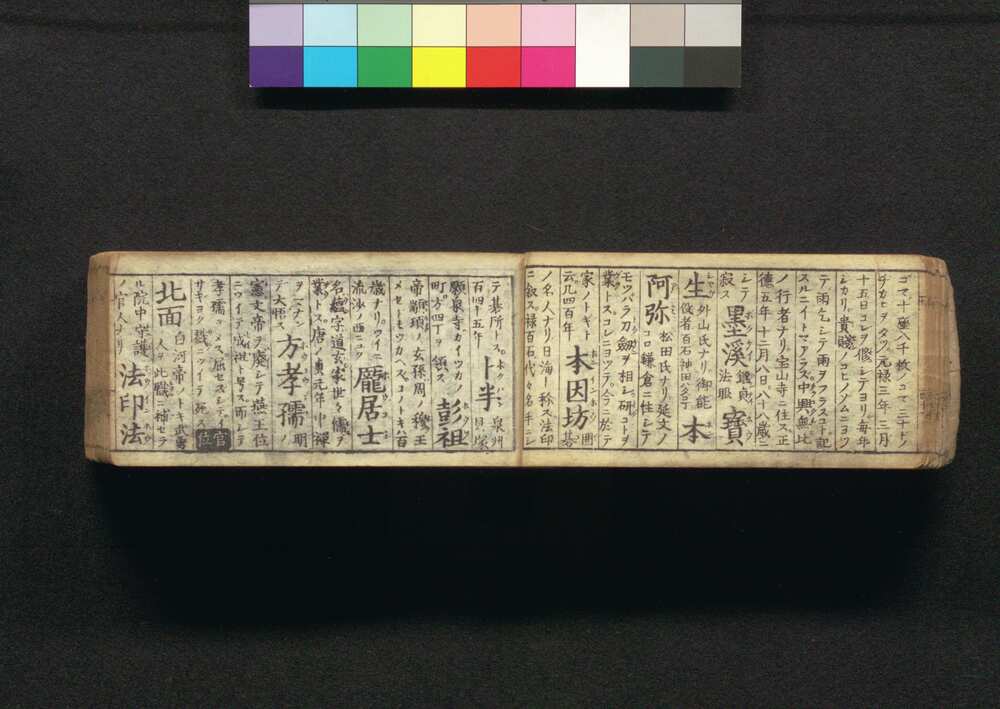 チカヒヲタツ元禄三年三月
十五日コレヲ修シテヨリ毎年
シキリ貴賤ノコヒノゾムニヨツ
テ雨乞シテ雨ヲフラスコト記
スルニイトマアラズ中興無比
ノ行者ナリ宝山寺ニ住ス正
徳五年十二月八日八十八歳ニ
シテ寂ス 墨溪 寶
生 外山氏ナリ御能役者百石神田 本
阿弥 松田氏ナリ延文ノコロ鎌倉ニ住シテ
モツパラ刀劔ヲ相シ研コトヲ
業トスコレニヨツテ今ニ於テ
家ノトギト云凡四百年 本因坊 囲碁
ノ名人ナリ日海ト称ス法印
ニ叙ス禄百石代々名手ニシ
テ碁所 百四十五年 ト半 泉州貝塚
願泉寺カイツカノ町方四丁ヲ領ス 彭祖
帝顓頊ノ玄孫周ノ穆王
メセトモツカヘスコノトキ八百
歳ナリツイニ流沙ノ西ニユク 龐居士
名蘊字道玄家世々儒ヲ
業トス唐ノ貞元年中禅
テ大悟ス 方孝孺 明
文帝ヲ廃シテ燕王位
ニツイテ成祖ト号ス而シテ
孝孺 屈セスシテイ
サキヨク戮ニツイテ死ス 官位
北面 白河帝ノトキ武勇ノ人ヲ此職ニ補セラ
ル院中守護ノ官人ナリ 法印 法